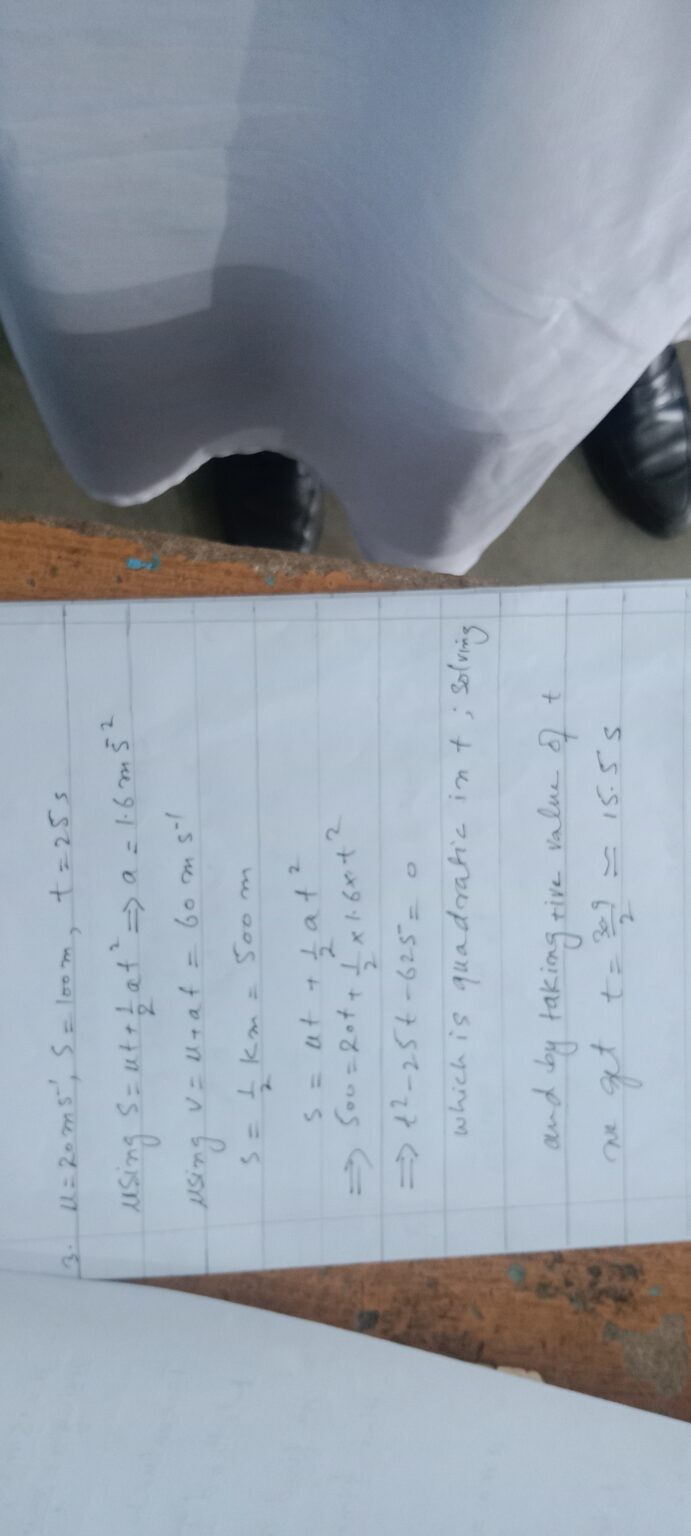 3. u=20ms⁻¹, S=100m, t=25s
using S=ut+½at² ⇒ a=1.6ms⁻²
using v=u+at = 60ms⁻¹
S = ½ Km = 500m
S = ut + ½at²
⇒ 500=20t+½×1.6×t²
⇒ t²-25t-625=0
which is quadratic in t ; solving
and by taking +ive value of t
we get t= /2 ≈ 15.5s